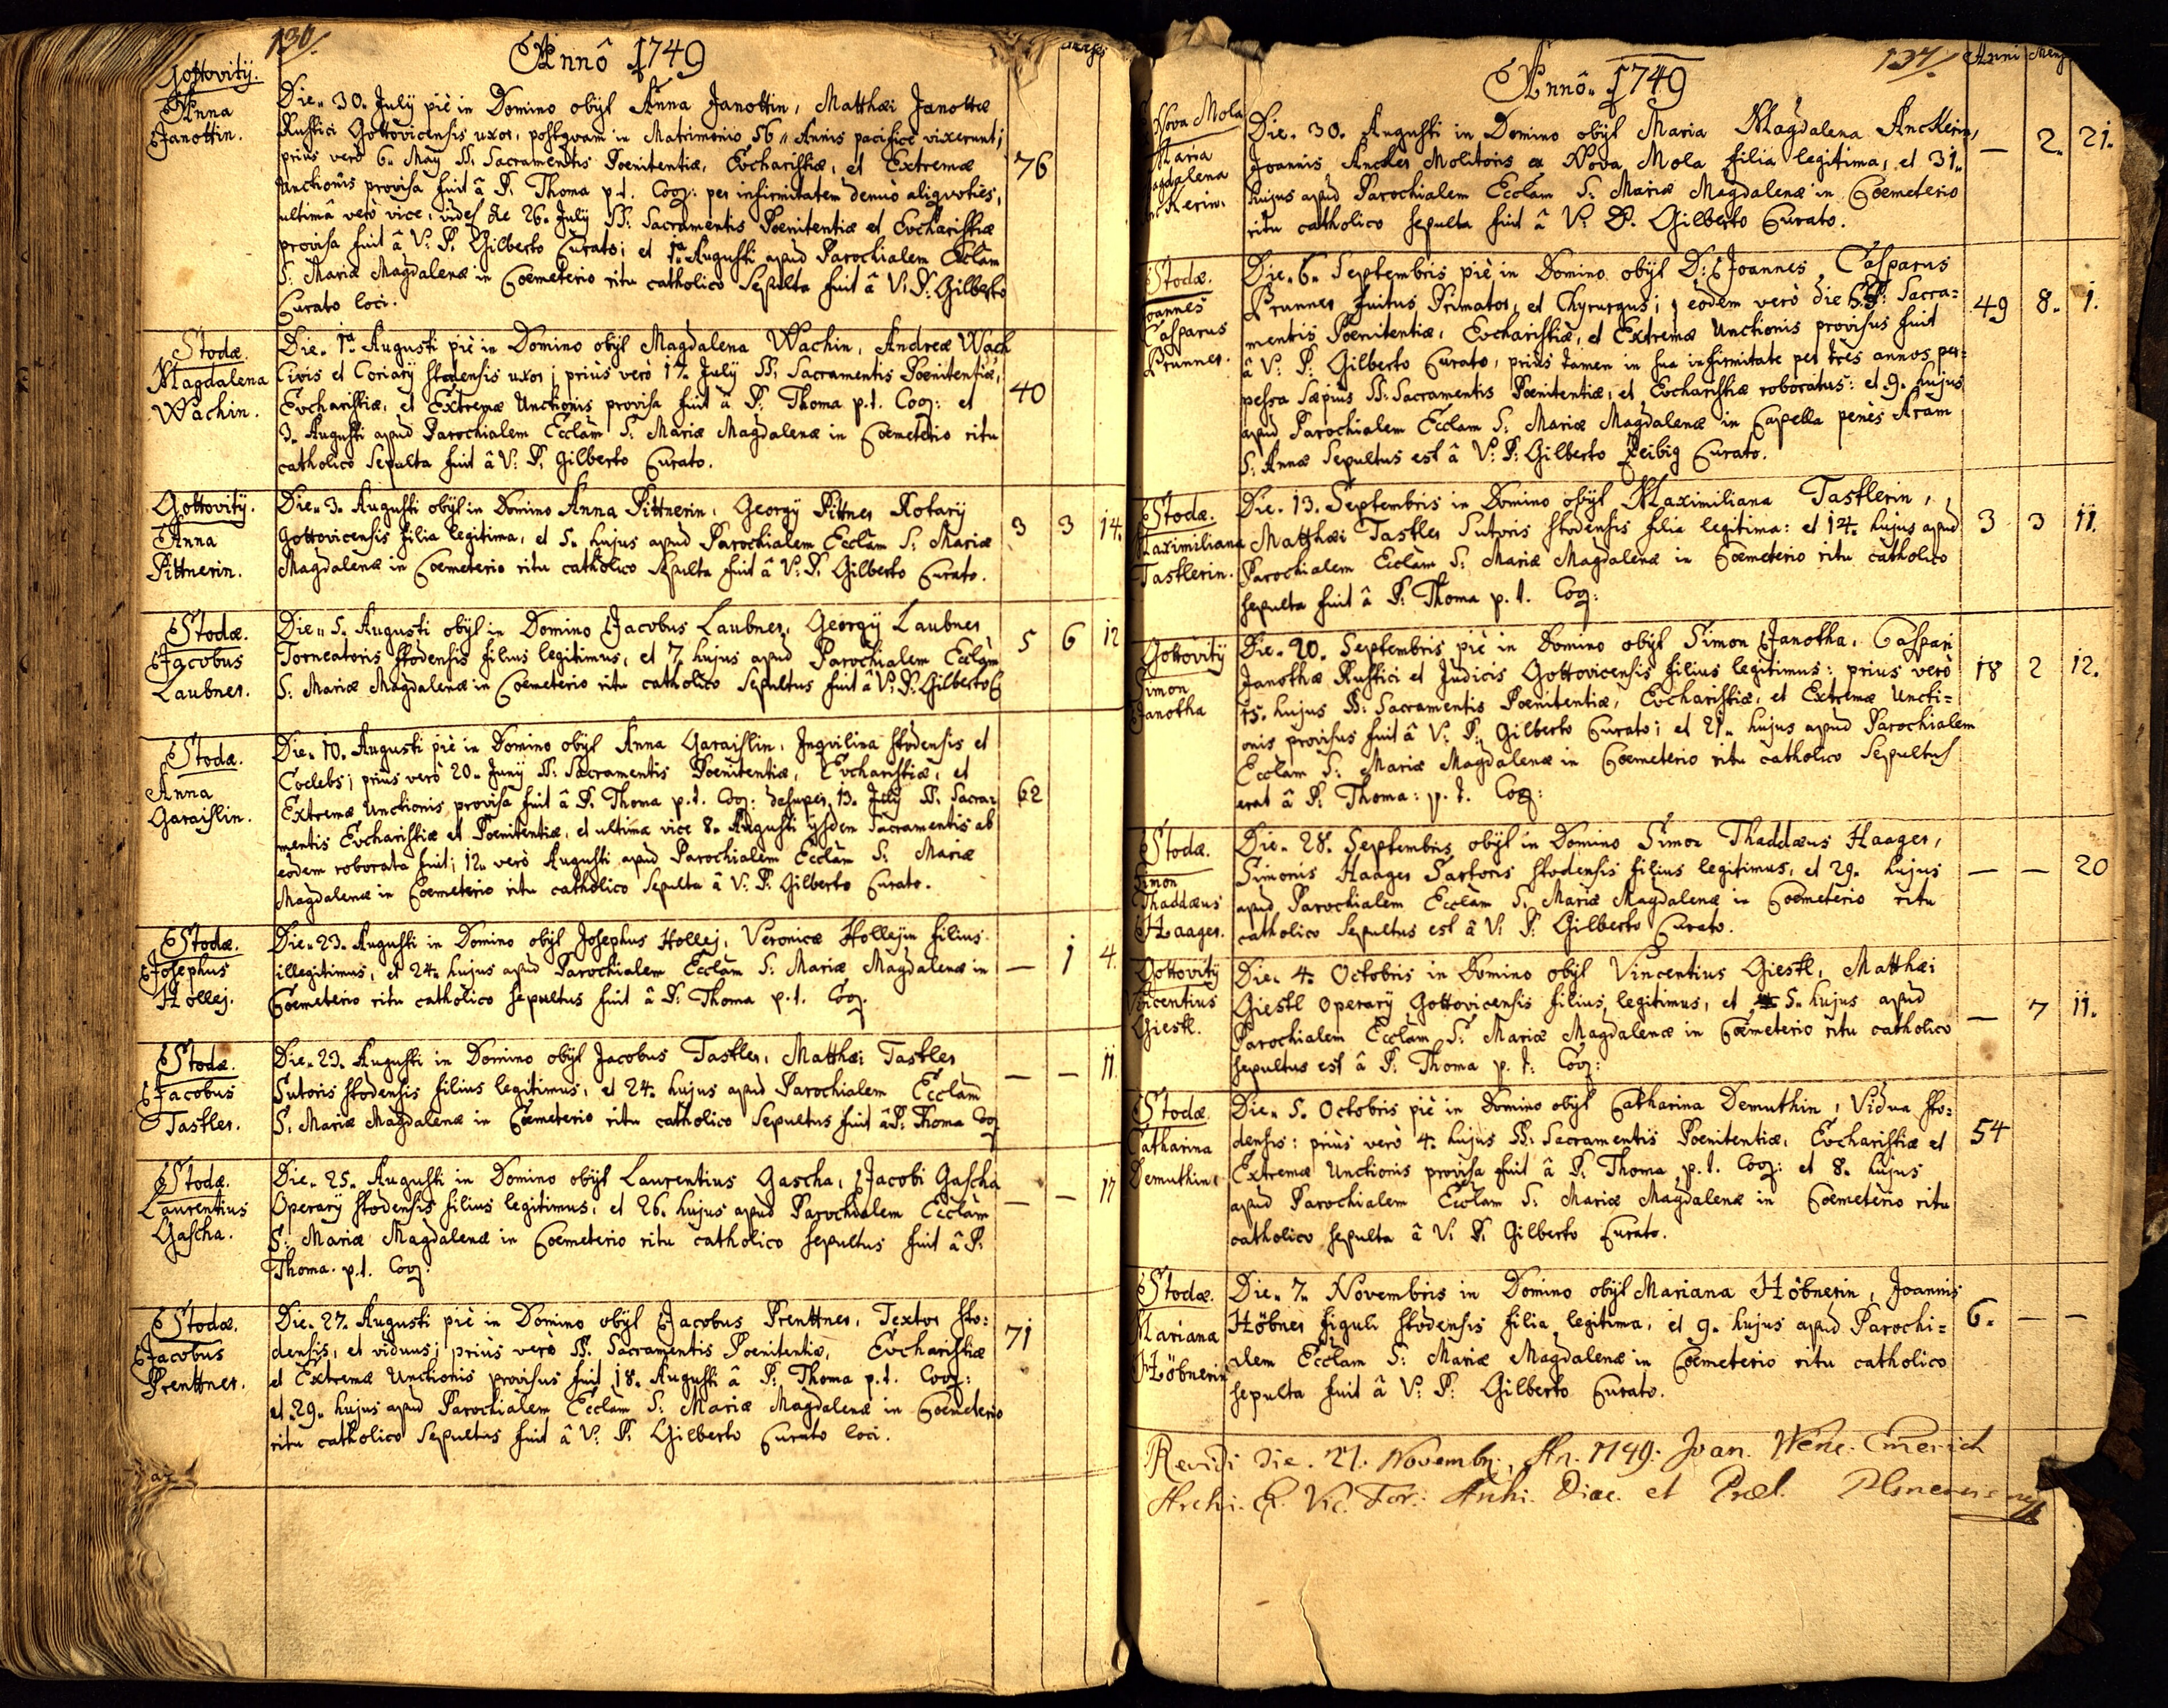 130/.
Annô 1749
menses
Gottovitÿ.
Anna
Janottin.
Die. 30. Julÿ piè in Domino obÿt Anna Janottin, Matthæi Janottæ
Rustici Gottovicensis uxor, postqvam in Matrimonio 56 Annis pacificè vixerunt;
prius verò 6. Maÿ SS. Sacramentis Poenitentiæ, Evcharistiæ, et Extremæ
Unctionis provisa fuit â P. Thoma p.t. Coop: per infirmitatem denuò aliqvoties,
ultimâ verò vice, videl. die 26. Julÿ SS. Sacramentis Poenitentiæ et Evcharistiæ
provisa fuit â V. P. Gilberto Curato; et 1a Augusti apud Parochialem Ecclam
S. Mariæ Magdalenæ in Coemeterio ritu catholico Sepulta fuit â V. P. Gilberto
Curato loci.
76
Stodæ.
Magdalena
Wachin.
Die. 1a Augusti piè in Domino obÿt Magdalena Wachin, Andreæ Wach
Civis et Coriarÿ Stodensis uxor; prius verò 17. Julÿ SS. Sacramentis Poenitentiæ,
Evcharistiæ, et Extremæ Unctionis provisa fuit â P. Thoma p.t. Coop: et
3. Augusti apud Parochialem Ecclam S. Mariæ Magdalenæ in Coemeterio ritu
catholico Sepulta fuit â V. P. Gilberto Curato.
40
Gottovitÿ.
Anna
Pittnerin.
Die. 3. Augusti obÿt in Domino Anna Pittnerin, Georgÿ Pittner Rotarÿ
Gottovicensis filia legitima, et 5. hujus apud Parochialem Ecclam S. Mariæ
Magdalenæ in Coemeterio ritu catholico Sepulta fuit â V. P. Gilberto Curato.
3 3 14.
Stodæ.
Jacobus
Laubner.
Die. 5. Augusti obÿt in Domino Jacobus Laubner, Georgÿ Laubner
Torneatoris Stodensis filius legitimus, et 7. hujus apud Parochialem Ecclam
S. Mariæ Magdalenæ in Coemeterio ritu catholico Sepultus fuit â V. P. Gilberto C
5 6 12
Stodæ.
Anna
Garaislin.
Die. 10. Augusti piè in Domino obÿt Anna Garaislin, Inqvilina Stodensis et
Coelebs; prius verò 20. Junÿ SS. Sacramentis Poenitentiæ, Evcharistiæ, et
Extremæ Unctionis provisa fuit â P. Thoma p.t. Coop: desuper 13. Julÿ SS. Sacra=
mentis Evcharistiæ et Poenitentiæ, et ultima vice 8. Augusti ÿsdem Sacramentis ab
eodem roborata fuit; 12. verò Augusti apud Parochialem Ecclam S. Mariæ
Magdalenæ in Coemeterio ritu catholico Sepulta â V. P. Gilberto Curato.
62
Stodæ.
Josephus
Hollej.
Die. 23. Augusti in Domino obÿt Josephus Hollej, Veronicæ Hollejin filius
illegitimus, et 24. hujus apud Parochialem Ecclam S. Mariæ Magdalenæ in
Coemeterio ritu catholico Sepultus fuit â P. Thoma p.t. Coop.
— 1 4.
Stodæ.
Jacobus
Tastler.
Die. 23. Augusti in Domino obÿt Jacobus Tastler, Matthæi Tastler
Sutoris Stodensis filius legitimus, et 24. hujus apud Parochialem Ecclam
S. Mariæ Magdalenæ in Coemeterio ritu catholico Sepultus fuit â P. Thoma Coop
— — 11.
Stodæ.
Laurentius
Gascha.
Die. 25. Augusti in Domino obÿt Laurentius Gascha, Jacobi Gascha
Operarÿ Stodensis filius legitimus, et 26. hujus apud Parochialem Ecclam
S. Mariæ Magdalenæ in Coemeterio ritu catholico Sepultus fuit â P.
Thoma. p.t. Coop.
— — 17
Stodæ.
Jacobus
Prenttner.
Die. 27. Augusti piè in Domino obÿt Jacobus Prenttner, Textor Sto=
densis, et viduus; prius verò SS. Sacramentis Poenitentiæ, Evcharistiæ
et Extremæ Unctionis provisus fuit 18. Augusti â P. Thoma p.t. Coop:
et 29. hujus apud Parochialem Ecclam S. Mariæ Magdalenæ in Coemeterio
ritu catholico Sepultus fuit â V. P. Gilberto Curato loci.
71
Annô. 1749
137/.
Anni Mens
Nova Mola
Maria
Magdalena
Die. 30. Augusti in Domino obÿt Maria Magdalena Anckerin,
Joannis Ancker Molitoris ex Nova Mola filia legitima, et 31.
hujus apud Parochialem Ecclam S. Mariæ Magdalenæ in Coemeterio
ritu catholico Sepulta fuit â V. P. Gilberto Curato.
— 2. 21.
Stodæ.
Joannes
Casparus
Prunner.
Die. 6. Septembris piè in Domino obÿt D: Joannes Casparus
Prunner huitus Primator, et Chyrurgus; eodem verò die SS: Sacra=
mentis Poenitentiæ, Evcharistiæ, et Extremæ Unctionis provisus fuit
â V. P. Gilberto Curato, prius tamen in sua infirmitate per tres annos per=
pessa sæpius SS: Sacramentis Poenitentiæ, et Evcharistiæ roboratus: et 9. hujus
apud Parochialem Ecclam S. Mariæ Magdalenæ in Capella penès Aram
S. Annæ Sepultus est â V. P. Gilberto Leibig Curato.
49 8. 1.
Stodæ.
Maximiliana
Tastlerin.
Die. 13. Septembris in Domino obÿt Maximiliana Tastlerin,
Matthæi Tastler Sutoris Stodensis filia legitima: et 14. hujus apud
Parochialem Ecclam S. Mariæ Magdalenæ in Coemeterio ritu catholico
Sepulta fuit â P. Thoma p. t. Coop:
3 3 11.
Gottovitÿ
Simon
Janotha
Die. 20. Septembris piè in Domino obÿt Simon Janotha, Caspari
Janothæ Rustici et Judicis Gottovicensis filius legitimus: prius verò
15. hujus SS: Sacramentis Poenitentiæ, Evcharistiæ, et Extremæ Uncti=
onis provisus fuit â V. P. Gilberto Curato; et 21. hujus apud Parochialem
Ecclam S: Mariæ Magdalenæ in Coemeterio ritu catholico Sepultus
erat â P. Thoma: p. t. Coop:
18 2 12.
Stodæ.
Simon
Thaddæus
Haager.
Die. 28. Septembris obÿt in Domino Simon Thaddæus Haager,
Simonis Haager Sartoris Stodensis filius legitimus, et 29. hujus
apud Parochialem Ecclam S. Mariæ Magdalenæ in Coemeterio ritu
catholico Sepultus est â V. P. Gilberto Curato.
— — 20
Gottovitÿ
Vincentius
Giestl.
Die. 4. Octobris in Domino obÿt Vincentius Giestl, Matthæi
Giestl Operarÿ Gottovicensis filius legitimus, et 5. hujus apud
Parochialem Ecclam S. Mariæ Magdalenæ in Coemeterio ritu catholico
Sepultus est â P. Thoma p. t. Coop:
— 7 11.
Stodæ
Catharina
Demuthin.
Die. 5. Octobris piè in Domino obÿt Catharina Demuthin, Vidua Sto=
densis: prius verò 4. hujus SS: Sacramentis Poenitentiæ, Evcharistiæ et
Extremæ Unctionis provisa fuit â P. Thoma p.t. Coop: et 8. hujus
apud Parochialem Ecclam S: Mariæ Magdalenæ in Coemeterio ritu
catholico Sepulta â V. P. Gilberto Curato.
54
Stodæ.
Mariana
Höbnerin
Die. 7. Novembris in Domino obÿt Mariana Höbnerin, Joannis
Höbner figuli Stodensis filia legitima, et 9. hujus apud Parochi=
alem Ecclam S: Mariæ Magdalenæ in Coemeterio ritu catholico
Sepulta fuit â V. P. Gilberto Curato.
6. — —
Revidi Die. 21. Novembr:, An. 1749. Joan. Wenc. Emerich
Archi. et Vic. For. Archi. Diac. et Præl. Plsnensis mpp